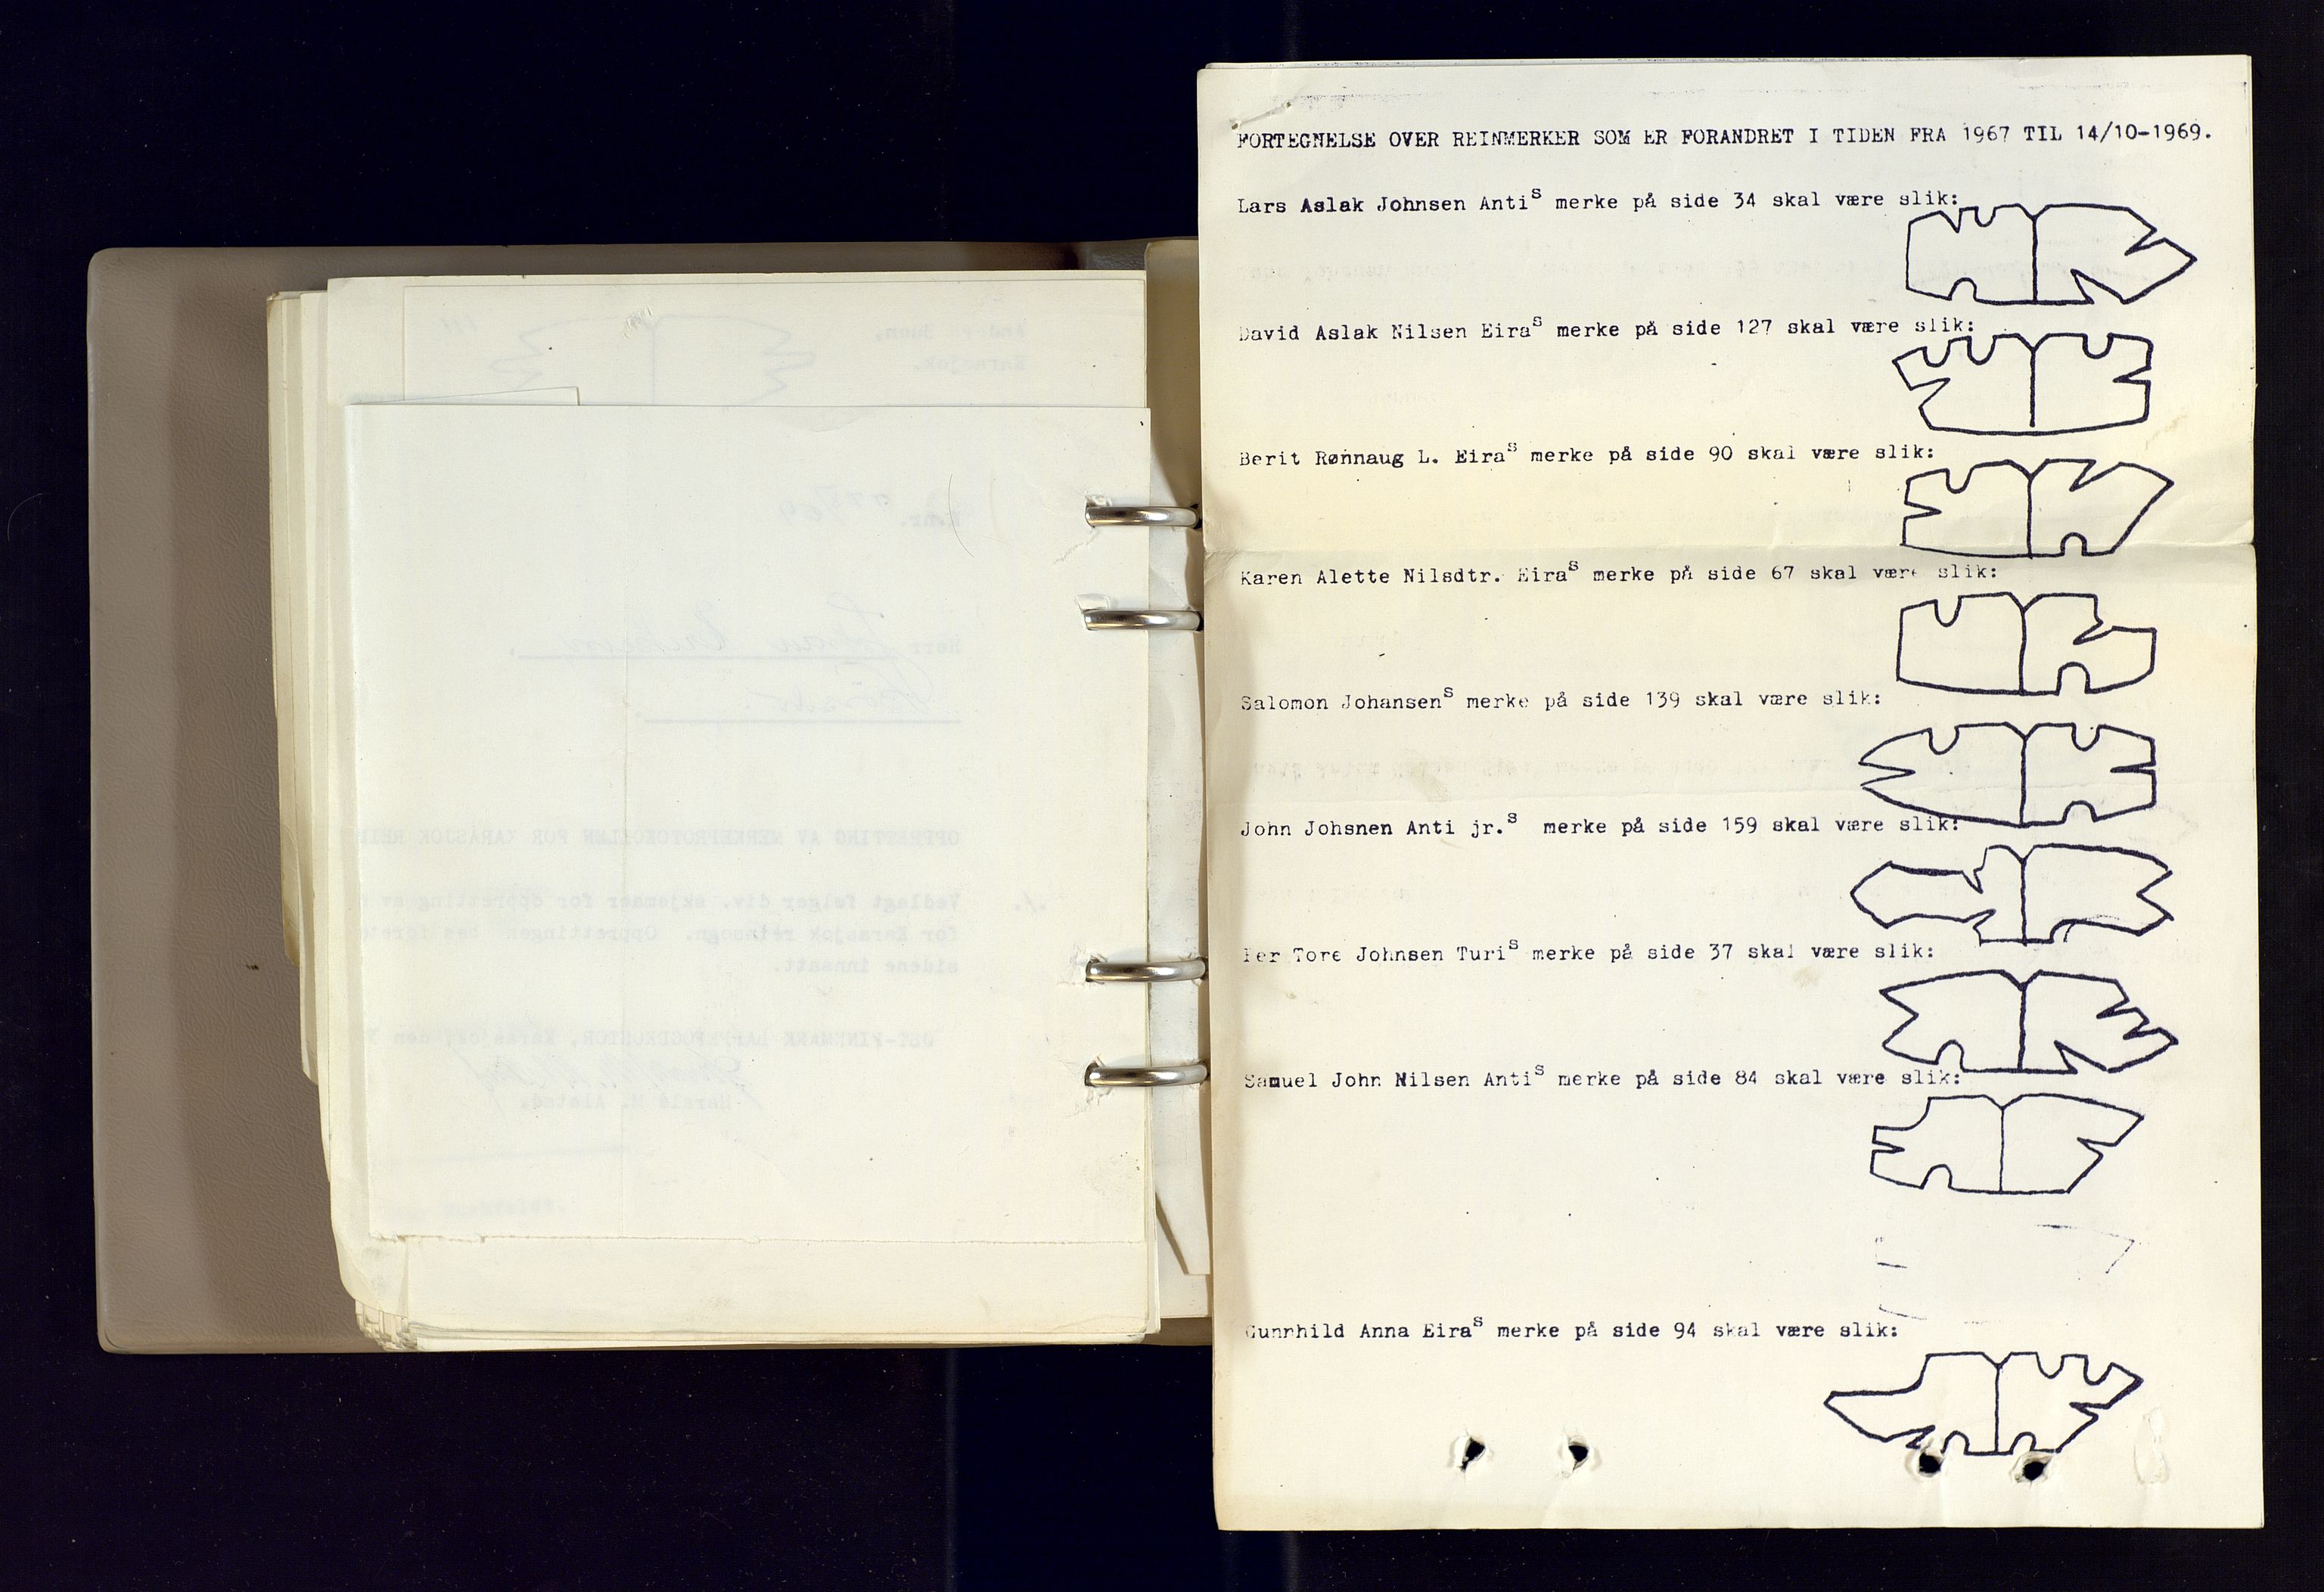 FORTEGNELSE OVER REINMERKER SOM ER FORANDRET I TIDEN FRA 1967 TIL 14/10-1969.
Lars Aslak Johnsen Antis merke på side 34 skal være slik:
David Aslak Nilsen Eiras merke på side 127 skal være slik:
Berit Rønnaug L. Eiras merke på side 90 skal være slik:
Karen Alette Nilsdtr. Eiras merke på side 67 skal være slik:
Salomon Johansens merke på side 139 skal være slik:
John Johsnen Anti jr.s merke på side 159 skal være slik:
Per Tore Johnsen Turis merke på side 37 skal være slik:
Samuel John Nilsen Antis merke på side 84 skal være slik:
Gunnhild Anna Eiras merke på side 94 skal være slik: